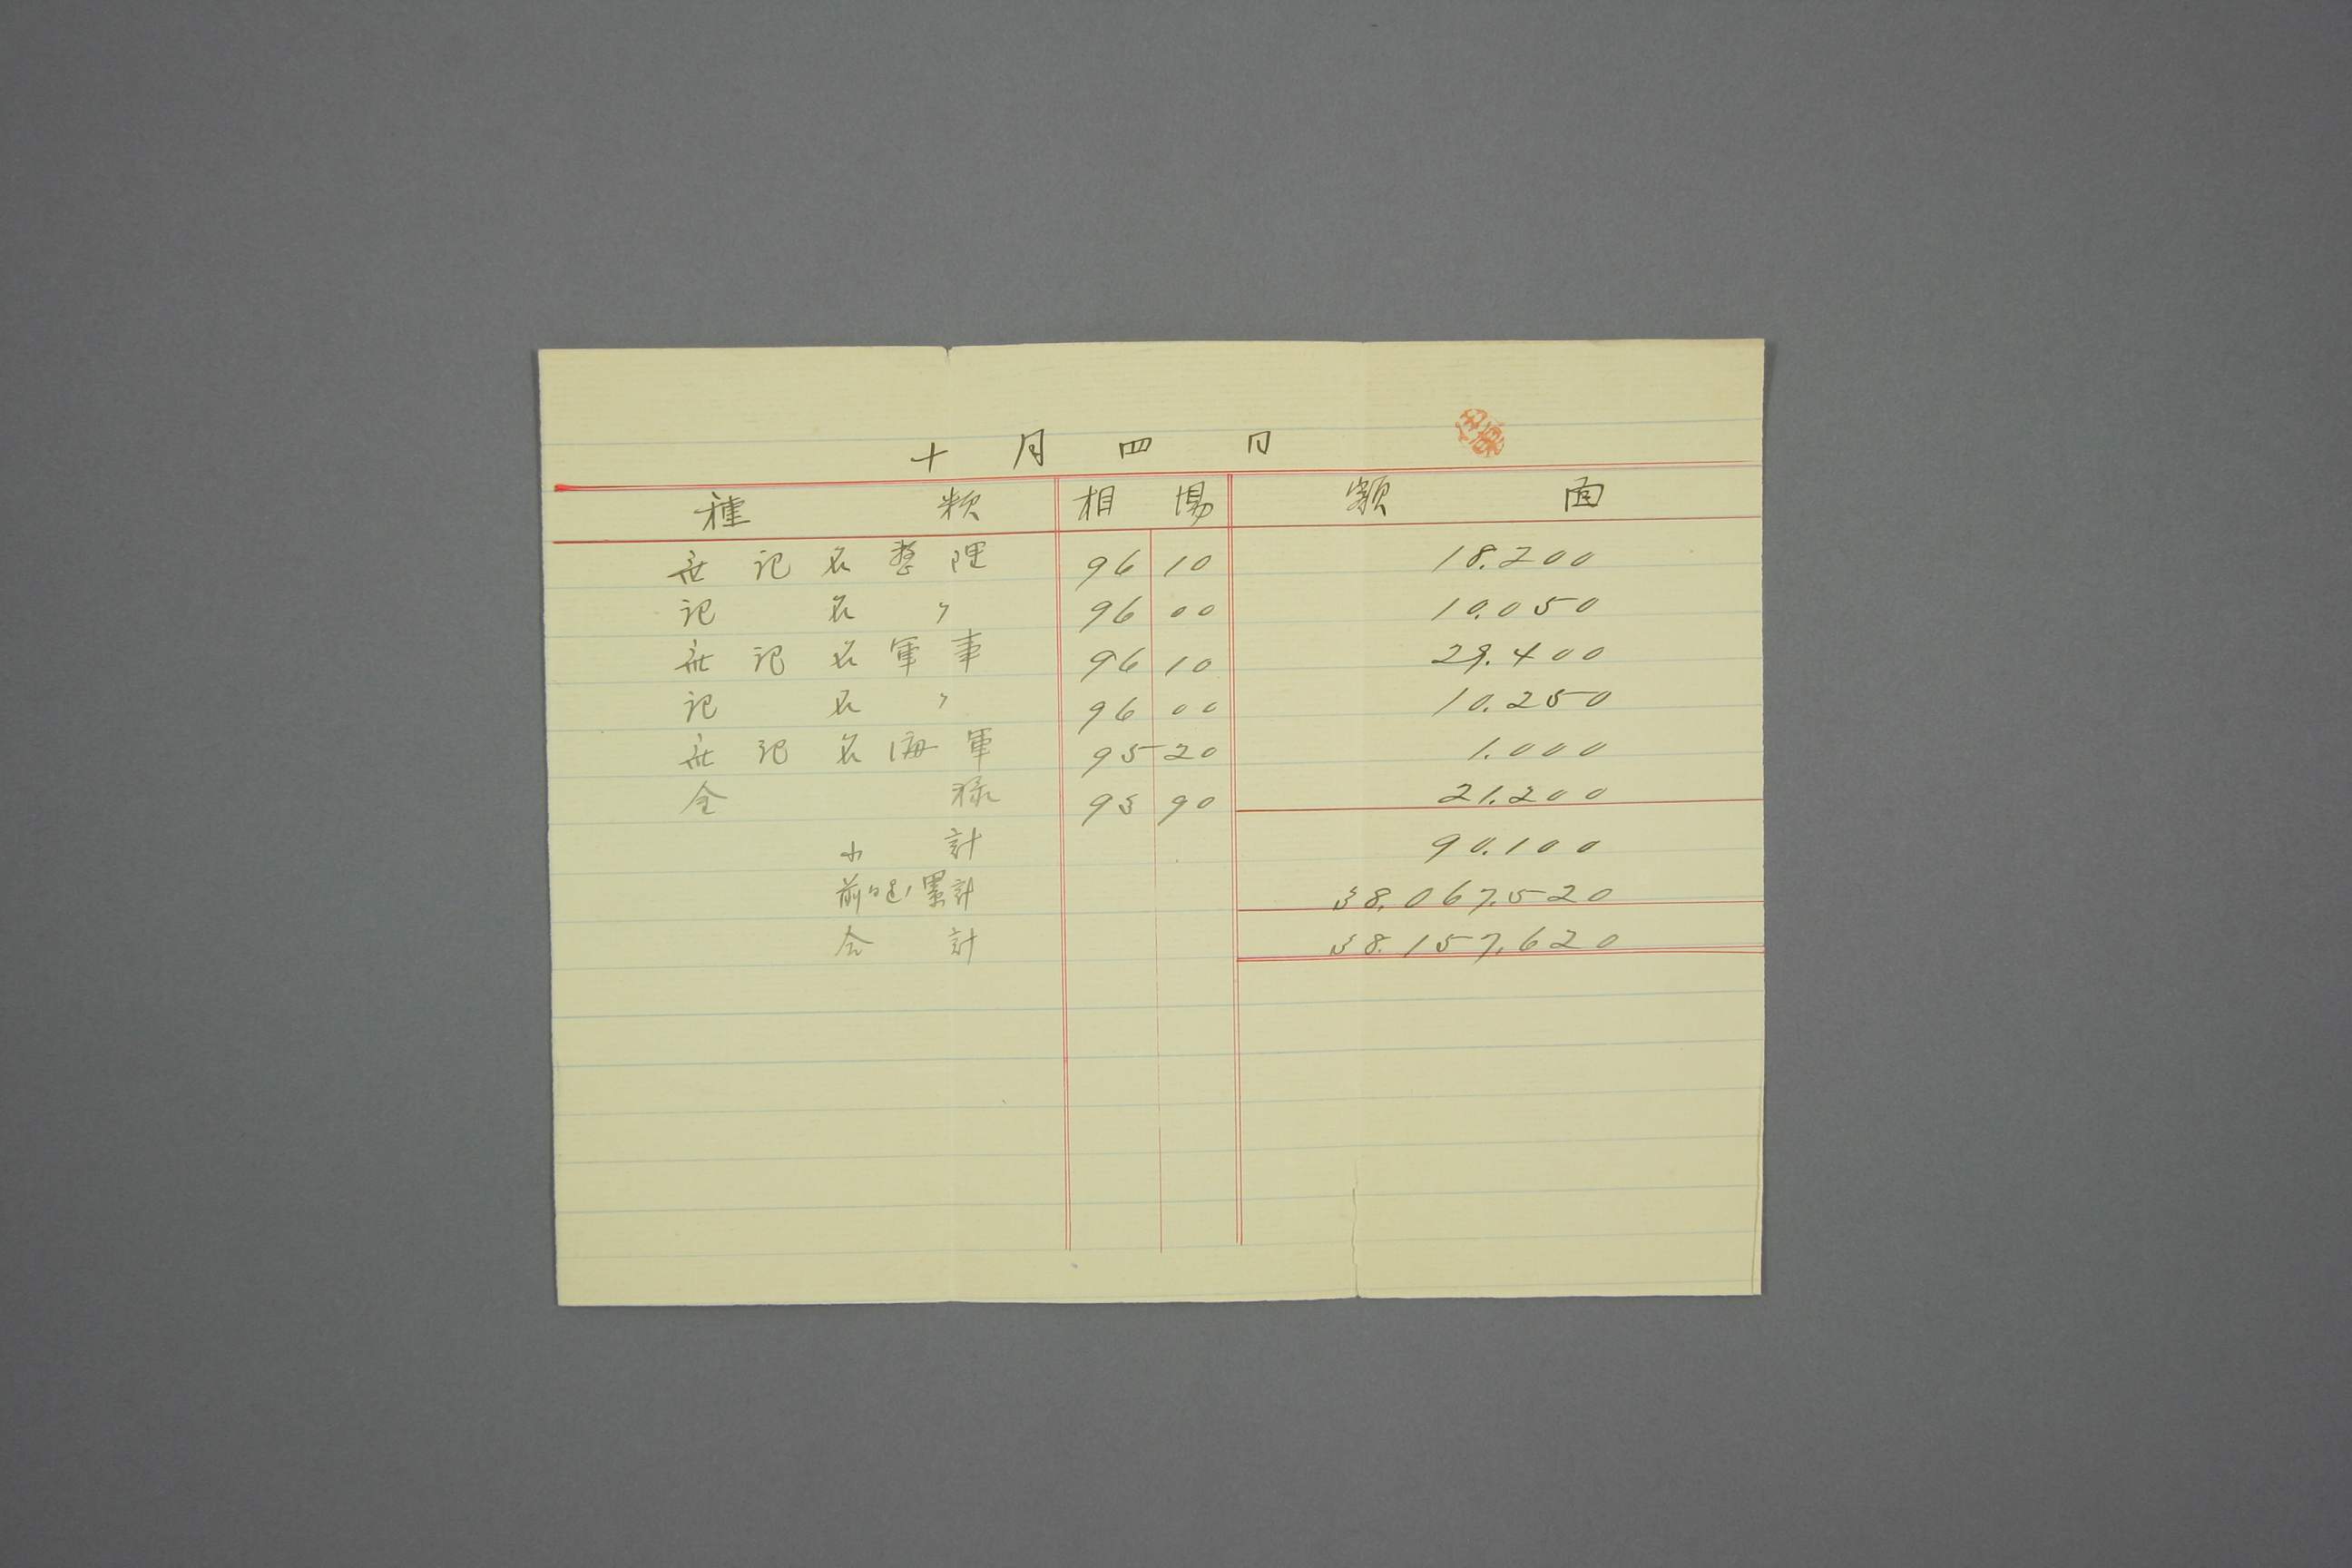 十月四日
種類 相場 額面
無記名整理 96 10 18.200
記名〃 96 00 10.050
無記名軍事 96 10 29.400
記名〃 96 00 10.250
無記名海軍 95 20 1.000
金禄 95 90 21.200
小計 90.100
前日迠累計 38.067.520
合計 38.157.620